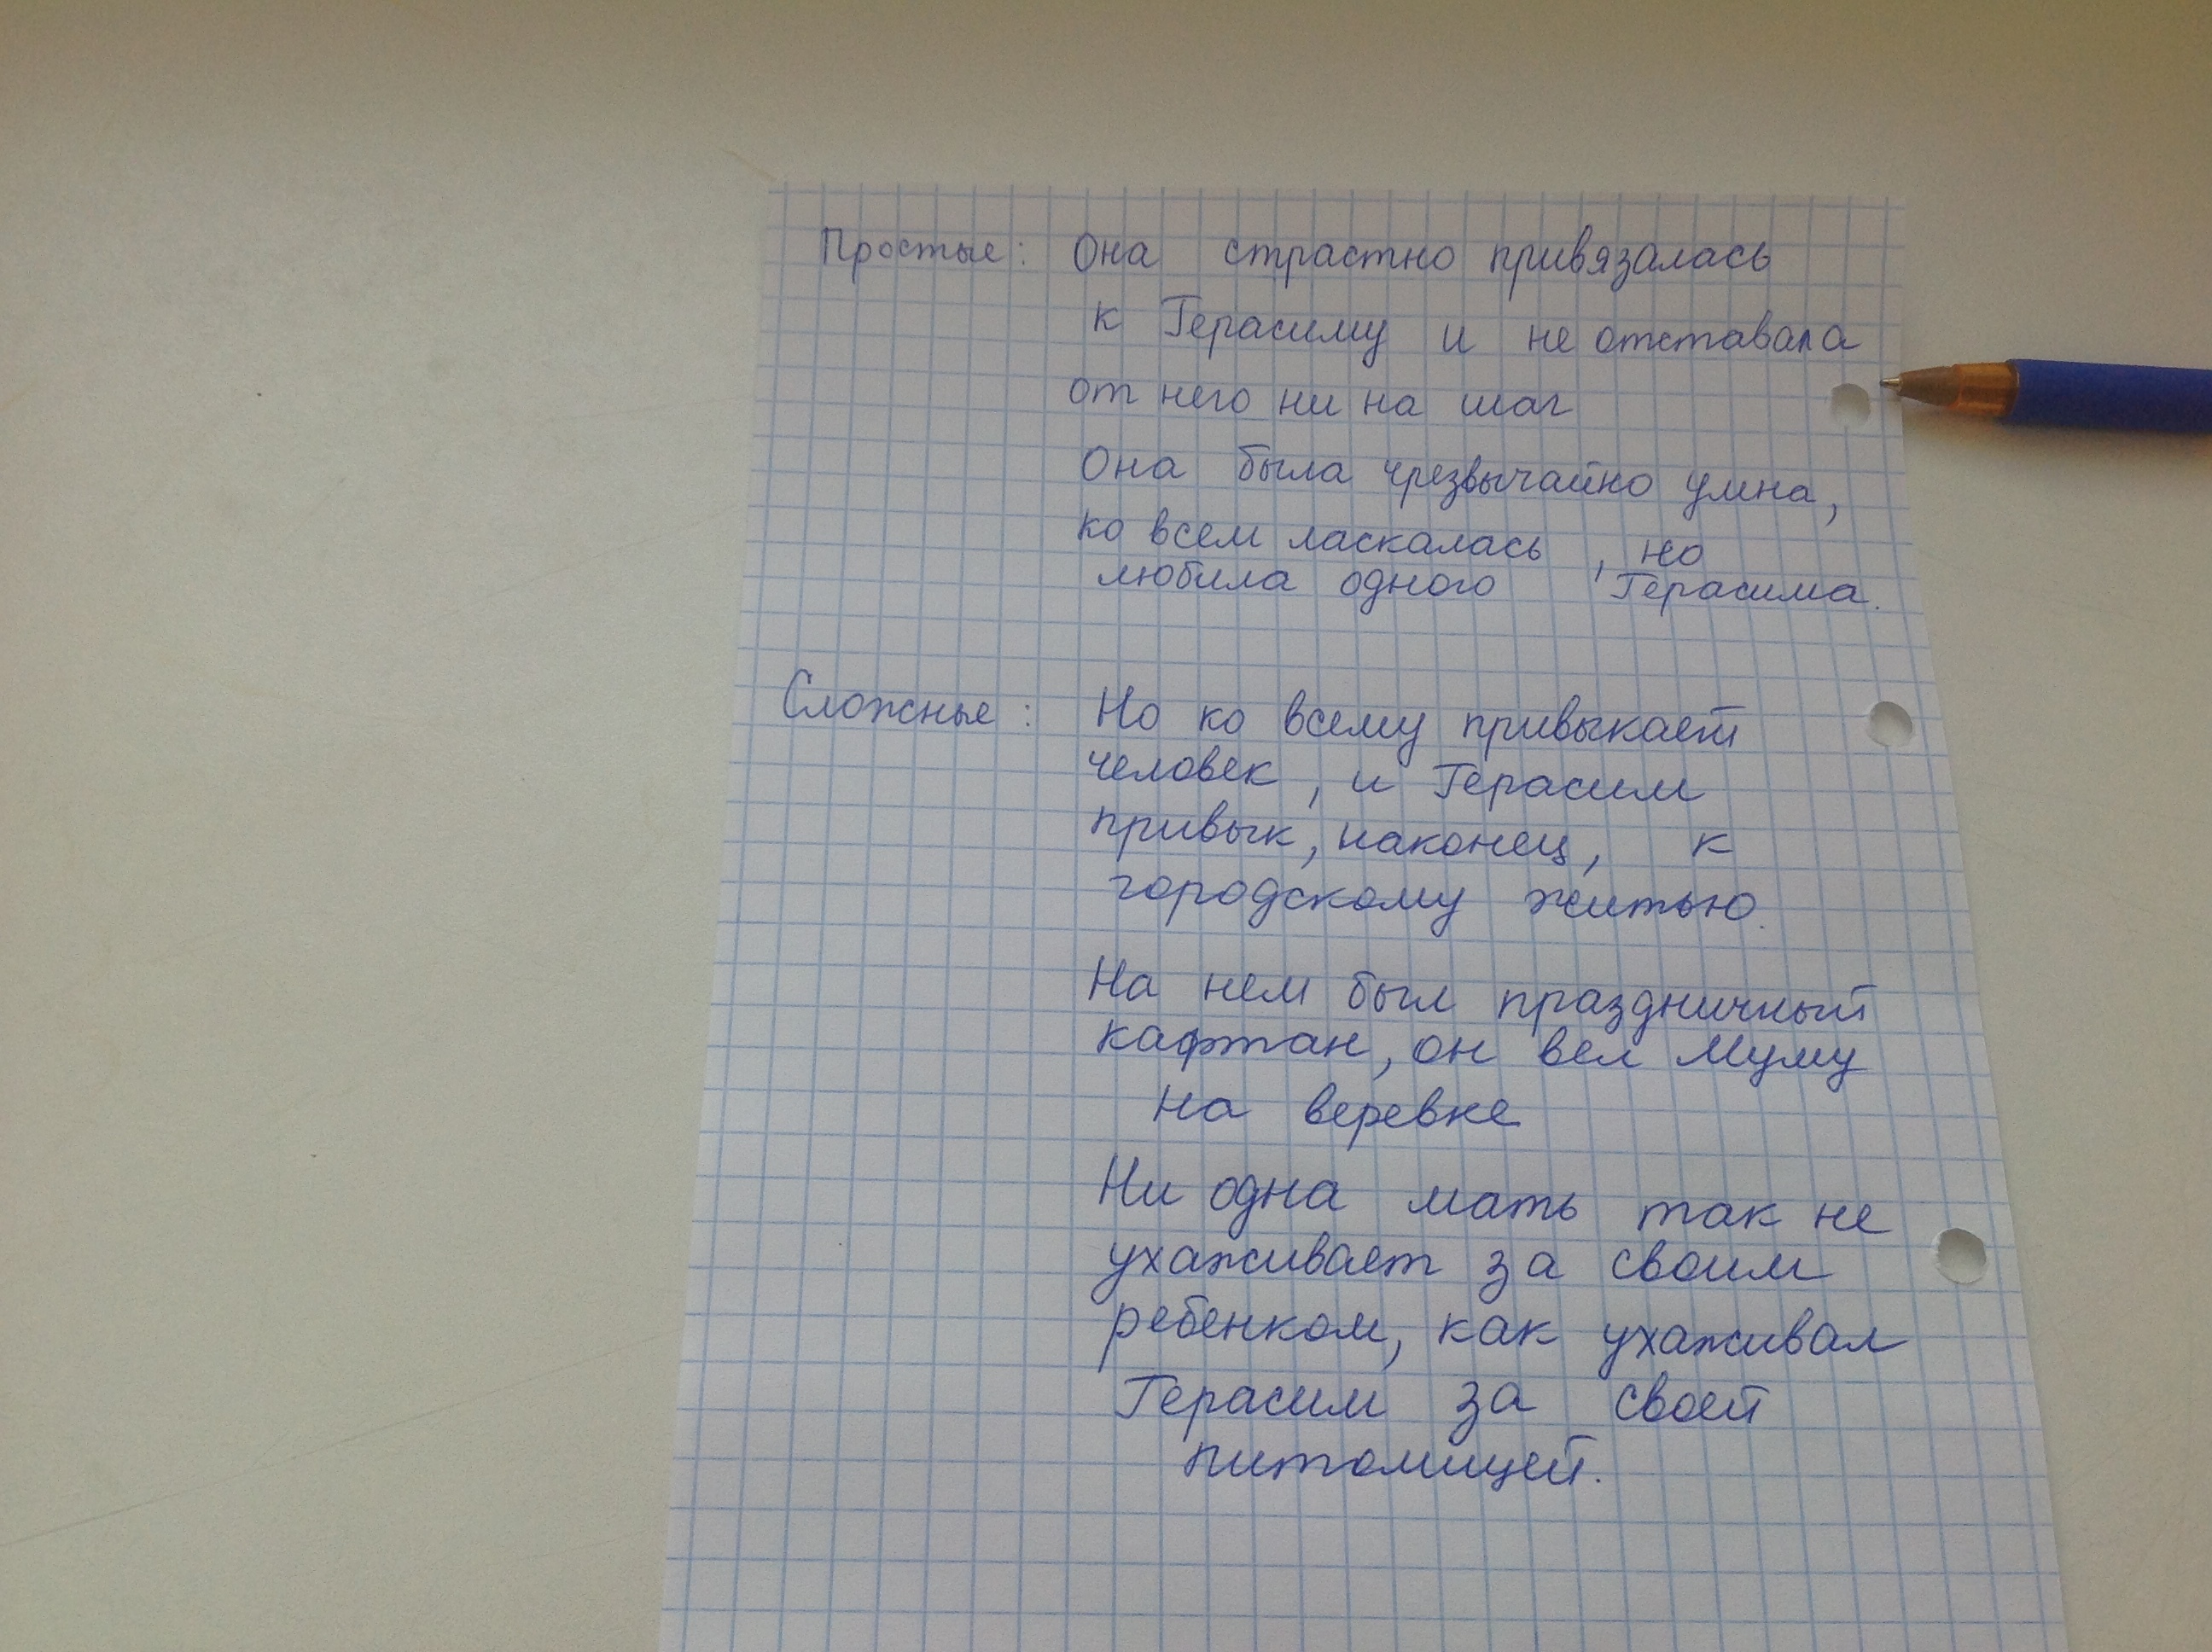 Простые: Она страстно привязалась
к Герасиму и не отставала
от него ни на шаг
Она была чрезвычайно умна,
ко всем ласкалась, но
любила одного Герасима.
Сложные: Но ко всему привыкает
человек, и Герасим
привык, наконец, к
городскому житью.
На нем был праздничный
кафтан, он вел Муму
на веревке
Ни одна мать так не
ухаживает за своим
ребенком, как ухаживал
Герасим за своей
питомицей.